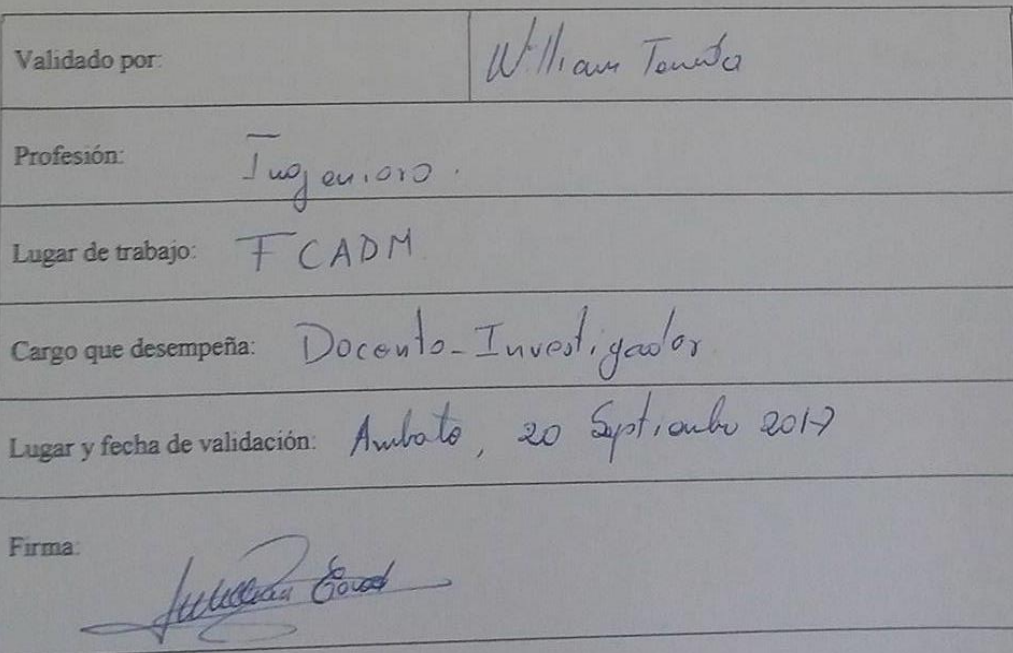 Validado por: William
Profesión: Ingeniero.
Lugar de trabajo: FCADM
Cargo que desempeña: Docente-Investigador
Lugar y fecha de validación: Ambato, 20 Septiembre 2017
Firma: